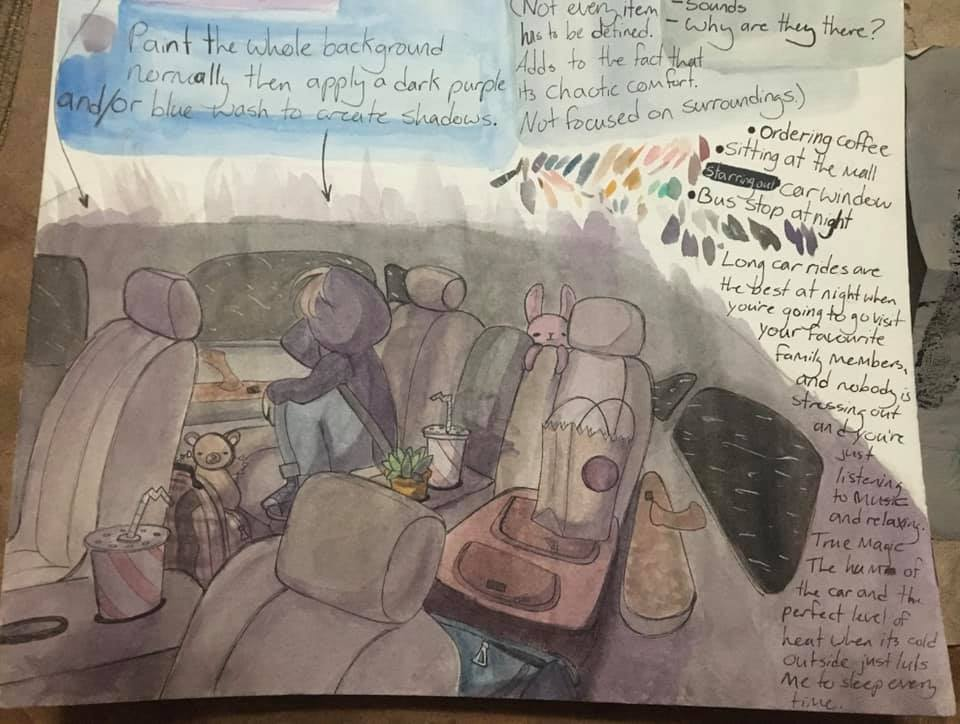 Paint the whole background
normally then apply a dark purple
and/or blue wash to create shadows.
(Not every item
has to be defined.
Adds to the fact that
its chaotic comfort.
Not focused on surroundings.)
- Sounds
- Why are they there?
• Ordering coffee
• Sitting at the mall
Starring out car window
• Bus stop at night
Long car rides are
the best at night when
you're going to go visit
your favourite
family members,
and nobody is
stressing out
and you're
just
listening
to music
and relaxing.
True Magic
The hum of
the car and the
perfect level of
heat when its cold
outside just lulls
me to sleep every
time.